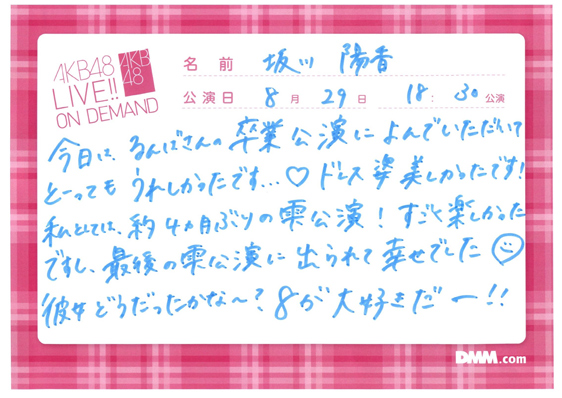 AKB48
LIVE!!
ON DEMAND
AKB
48
名前 坂川 陽香
公演日 8月29日 18:30公演
今日は、るんばさんの卒業公演によんでいただいて
とーっても うれしかったです...♡ ドレス姿美しかったです!
私としては、約4ヵ月ぶりの雫公演! すごく楽しかった
ですし、最後の雫公演に出られて幸せでした☺
'彼女'どうだったかな〜? 8が大好きだー!!
DMM.com